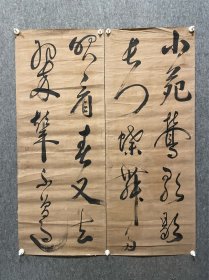 小苑鶯歌歇
長門蝶舞多
眼看春又去
翠輦不曾過